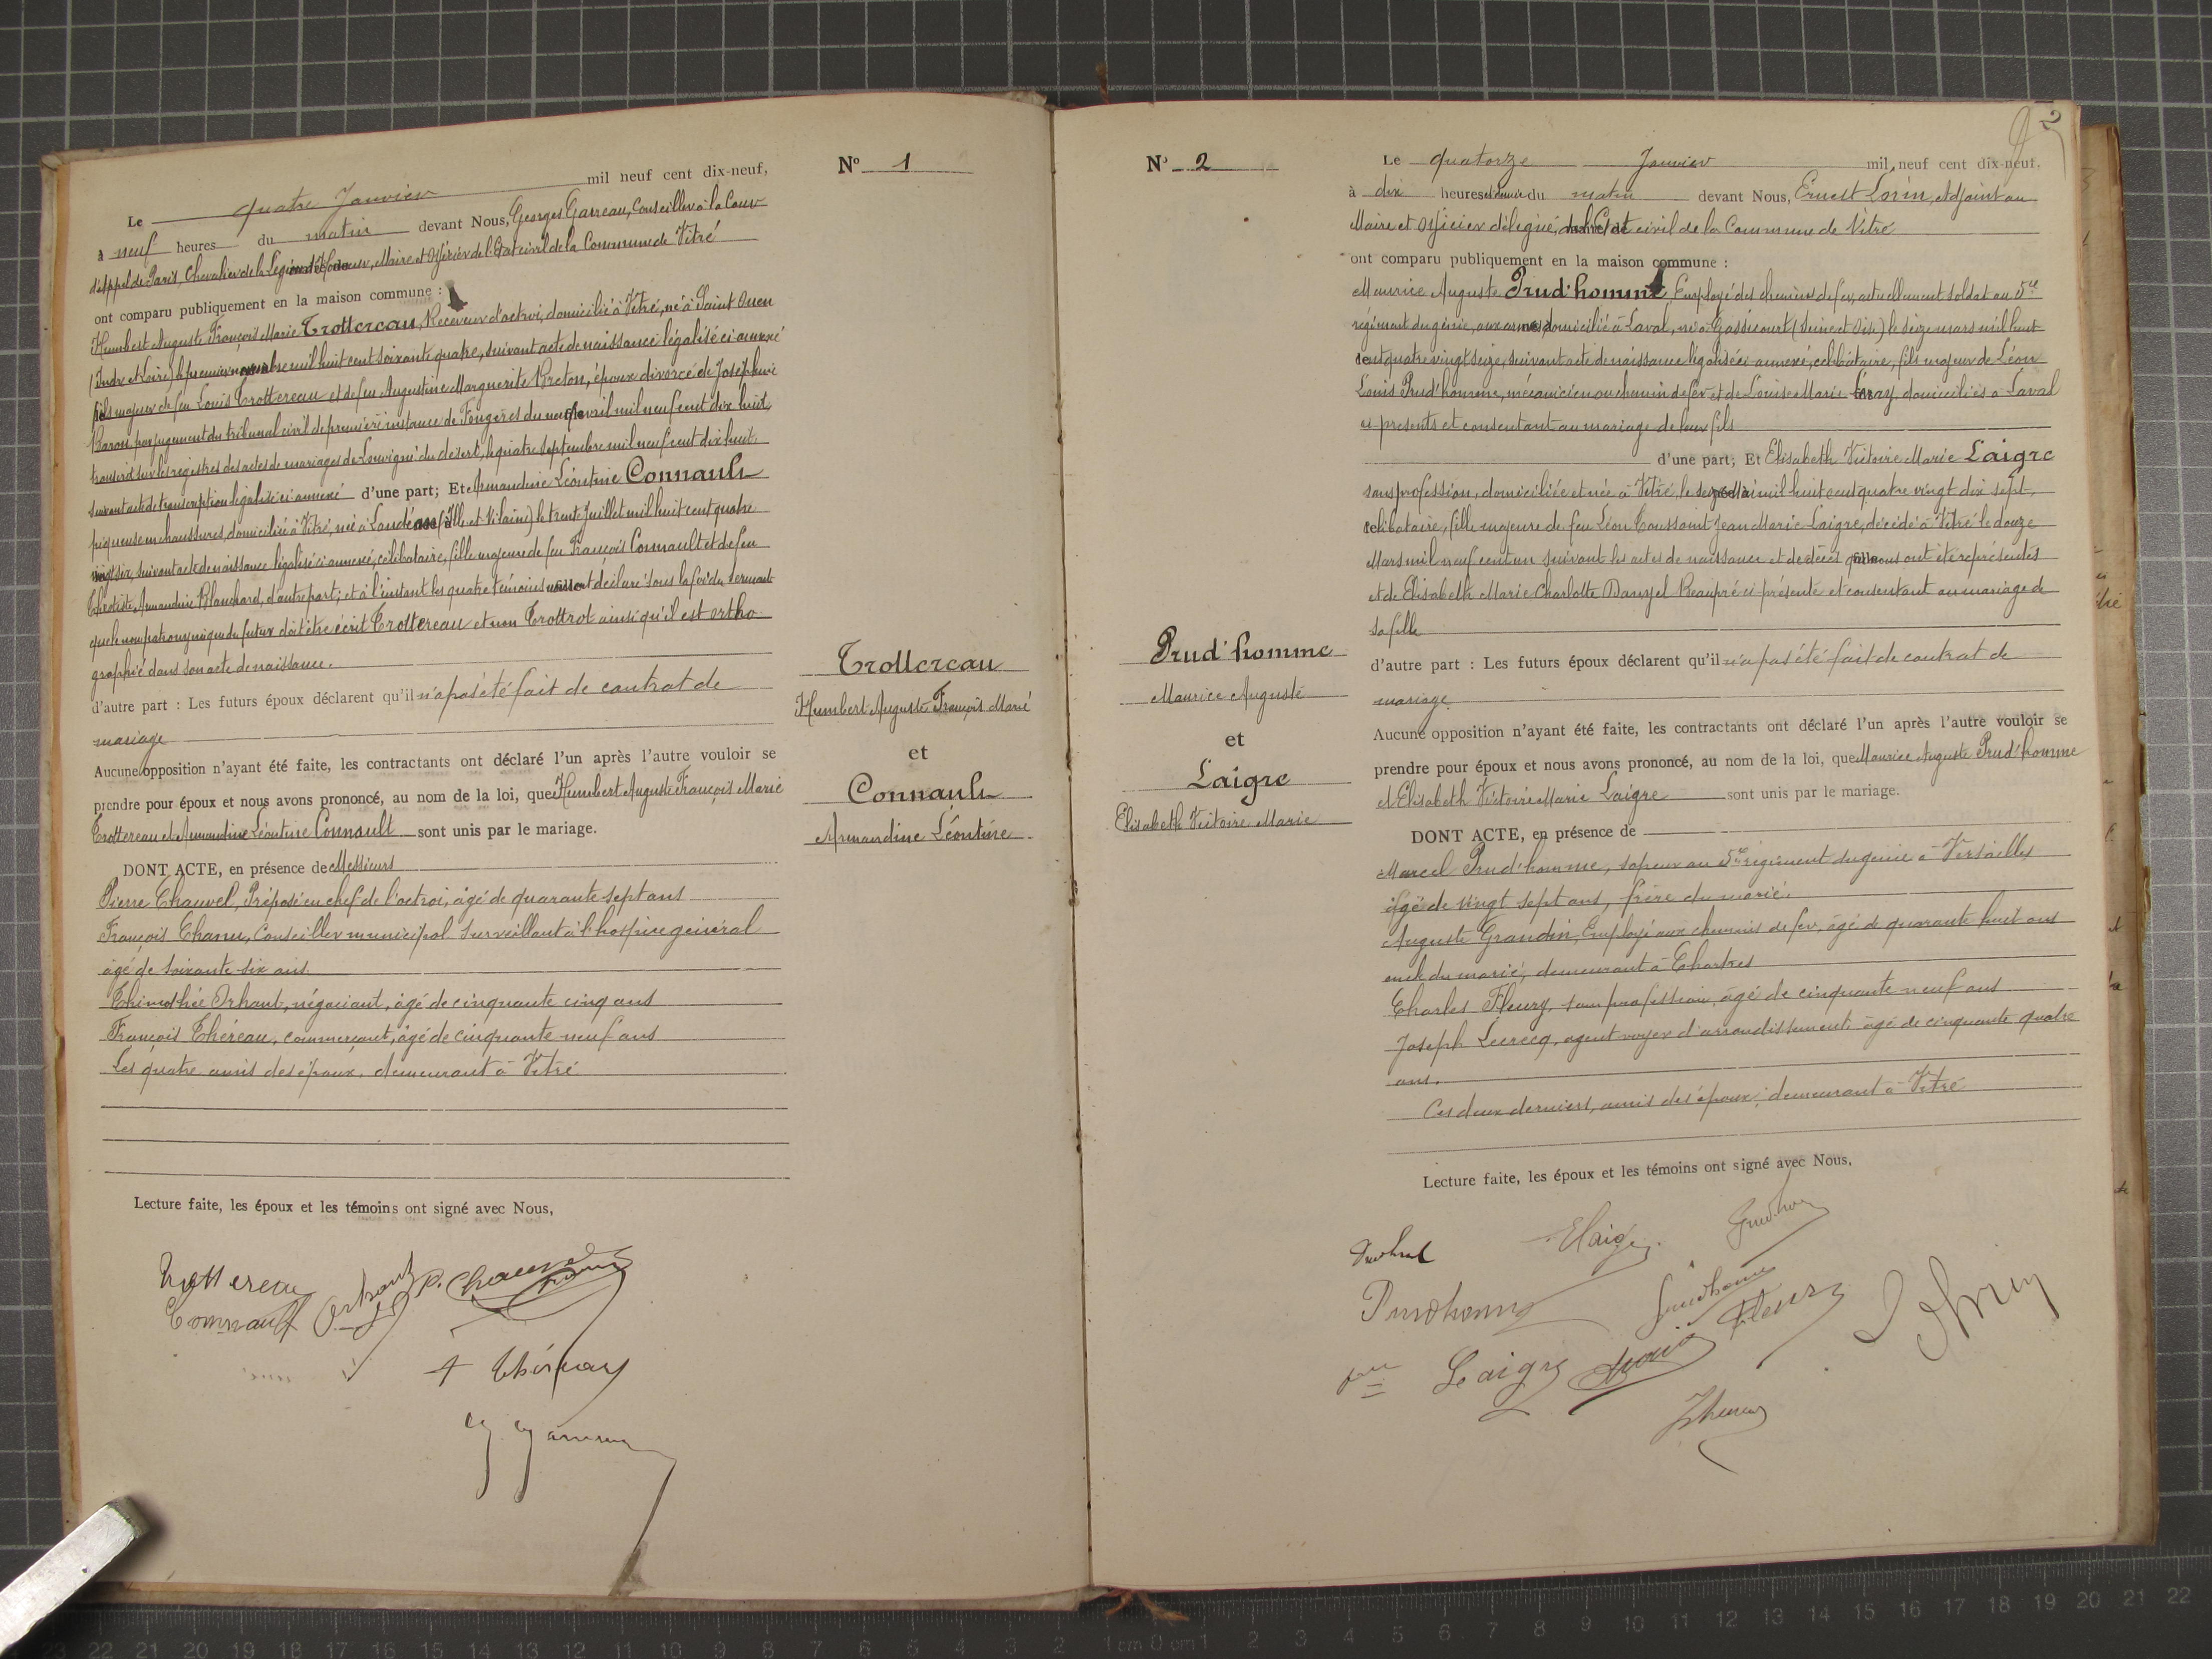 Nº 1
Le quatre Janvier mil neuf cent dix-neuf,
à neuf heures du matin devant Nous, Georges Garreau, Conseiller à la Cour
d'appel de Paris, Chevalier de la Légion d'Honneur, Maire et Officier de l'Etat civil de la Commune de Vitré
ont comparu publiquement en la maison commune :
Humbert Auguste François Marie Trottereau, Receveur d'octroi, domicilié à Vitré, né à Saint Ouen
(Indre et Loire) le premier mil huit cent soixante quatre, suivant acte de naissance légalisé ci-annexé
fils majeur de feu Louis Trottereau et de feu Augustine Marguerite Breton, époux divorcé de Joséphine
Baron par jugement du tribunal civil de première instance de Fougères du neuf avril mil neuf cent dix huit,
transcrit sur les registres des actes de mariages de Louvigné du désert, le quatre Septembre mil neuf cent dix huit
suivant acte de transcription légalisé ci annexé d'une part; Et Armandine Léontine Connault
piqueuse en chaussures, domiciliée à Vitré, née à Landéan (Ille et Vilaine) le trente Juillet mil huit cent quatre
vingt six, suivant acte de naissance légalisé ci annexé, célibataire, fille majeure de feu François Connault et de feu
Armandine Blanchard, d'autre part; et à l'instant les quatre témoins nous ont déclaré sous la foi du serment
que le nom patronymique du futur doit être écrit Trottereau et non Trottrot ainsi qu'il est ortho-
graphié dans son acte de naissance.
d'autre part : Les futurs époux déclarent qu'il n'a pas été fait de contrat de
mariage
Aucune opposition n'ayant été faite, les contractants ont déclaré l'un après l'autre vouloir se
prendre pour époux et nous avons prononcé, au nom de la loi, que Humbert Auguste François Marie
Trottereau et Armandine Léontine Connault sont unis par le mariage.
DONT ACTE, en présence de Messieurs
Pierre Chauvel, Préposé en chef de l'octroi, âgé de quarante sept ans
François Chanu, Conseiller municipal Surveillant à l'hospice général
âgé de soixante six ans.
Thimothée Orhant, négociant, âgé de cinquante cinq ans
François Théreau, commerçant, âgé de cinquante neuf ans
Les quatre amis des époux, demeurant à Vitré
Lecture faite, les époux et les témoins ont signé avec Nous,
Trottereau
Connault
Orhant
P. Chauvel
Trottereau
Humbert Auguste François Marie
et
Connault
Armandine Léontine
2
Nº 2
Le quatorze Janvier mil neuf cent dix-neuf,
à dix heures et demie du matin devant Nous, Ernest Lorin, Adjoint au
Maire et Officier délégué de l'Etat civil de la Commune de Vitré
ont comparu publiquement en la maison commune :
Maurice Auguste Prud'homme, Employé des chemins de fer, actuellement soldat au 5e
régiment du génie, aux armées domicilié à Laval, né à Gassicourt (Seine et Oise) le seize mars mil huit
cent quatre vingt seize, suivant acte de naissance légalisé ci-annexé, célibataire, fils majeur de Léon
Louis Prud'homme, mécanicien au chemin de fer et de Louise Marie domiciliés à Laval
ci-présents et consentant au mariage de leur fils
d'une part; Et Elisabeth Victoire Marie Laigre
sans profession, domiciliée et née à Vitré, le mil huit cent quatre vingt dix sept,
célibataire, fille majeure de feu Léon Toussaint Jean Marie Laigre, décédé à Vitré le douze
Mars mil neuf cent un suivant les actes de naissance et de décès qui nous ont été représentés
et de Elisabeth Marie Charlotte Danjel Beaupré ci-présente et consentant au mariage de
sa fille
d'autre part : Les futurs époux déclarent qu'il n'a pas été fait de contrat de
mariage
Aucune opposition n'ayant été faite, les contractants ont déclaré l'un après l'autre vouloir se
prendre pour époux et nous avons prononcé, au nom de la loi, que Maurice Auguste Prud'homme
et Elisabeth Victoire Marie Laigre sont unis par le mariage.
DONT ACTE, en présence de
Marcel Prud'homme, sapeur au 5e régiment du génie à Versailles
âgé de vingt sept ans, frère du marié.
Auguste Grandin, Employé aux chemins de fer, âgé de quarante huit ans
oncle du marié, demeurant à Chartres
Charles Fleury, sans profession, âgé de cinquante neuf ans
Joseph Lecrecq, agent voyer d'arrondissement âgé de cinquante quatre
ans.
Ces deux derniers, amis des époux, demeurant à Vitré
Lecture faite, les époux et les témoins ont signé avec Nous,
Prudhomme
Fleury
Laigre
Prud'homme
Maurice Auguste
et
Laigre
Elisabeth Victoire Marie